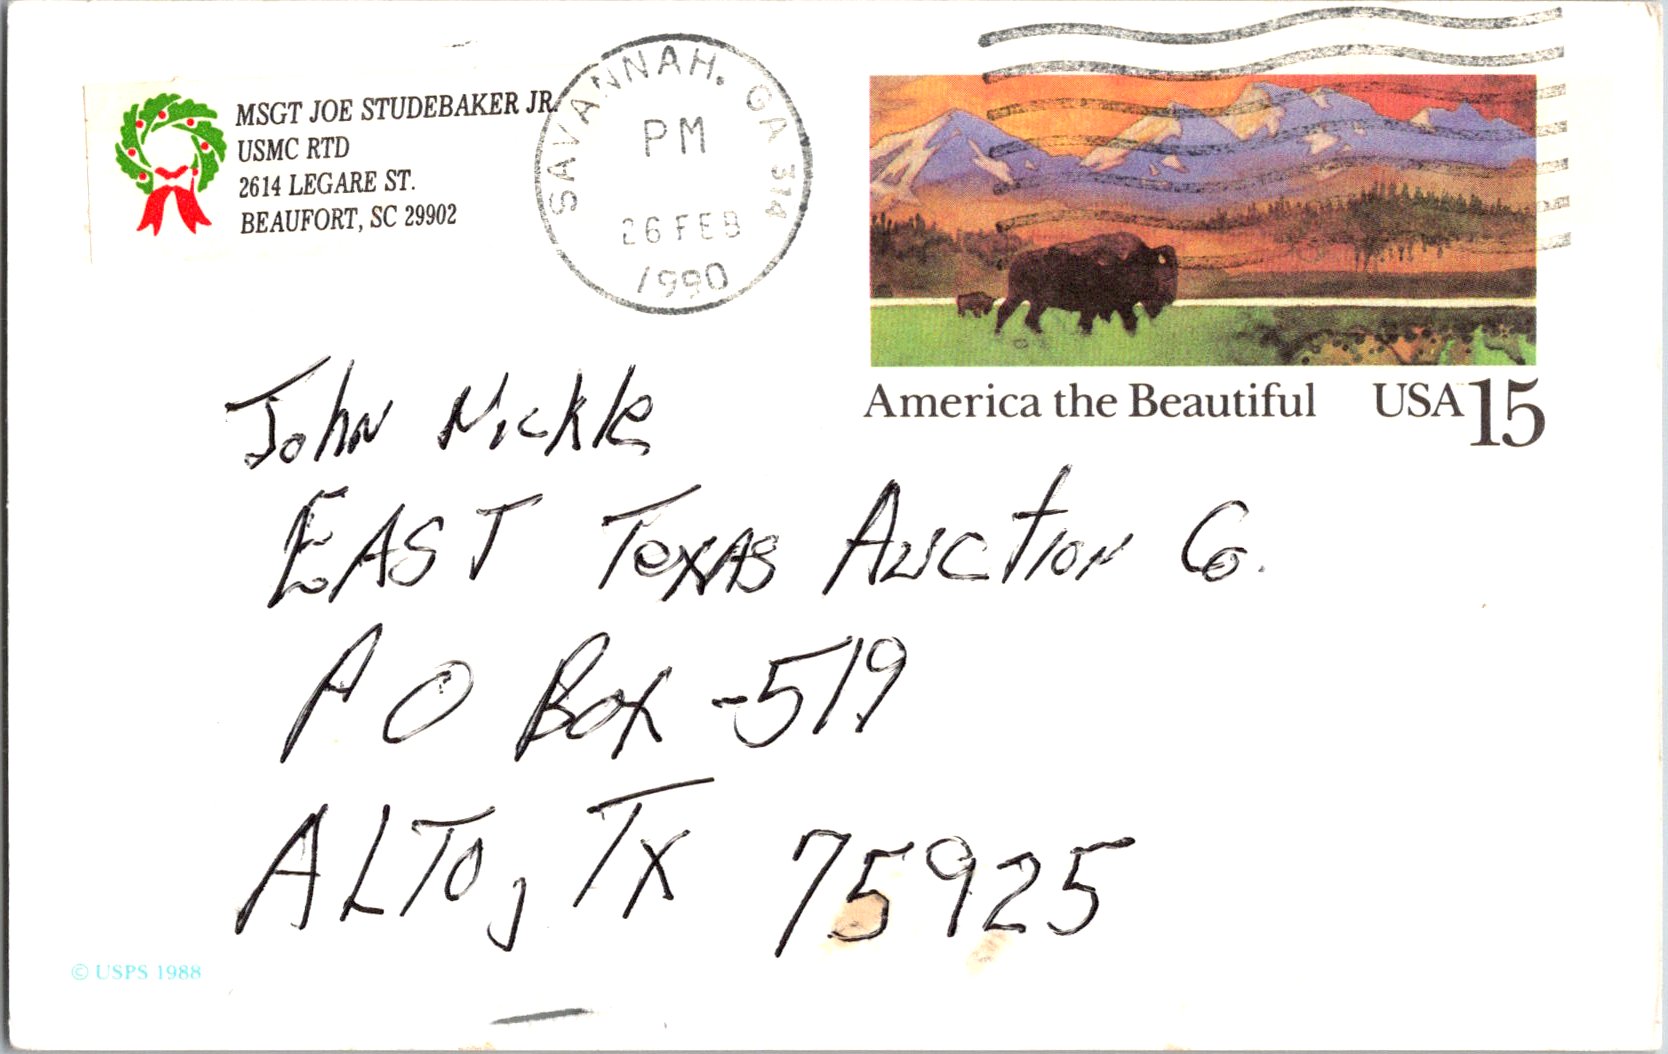 MSGT JOE STUDEBAKER JR.
USMC RTD
2614 LEGARE ST.
BEAUFORT, SC 29902
SAVANNAH, GA 314
PM
26 FEB
1990
America the Beautiful USA 15
John Nickle
EAST TEXAS AUCTION Co.
P O Box -519
ALTO, TX 75925
© USPS 1988